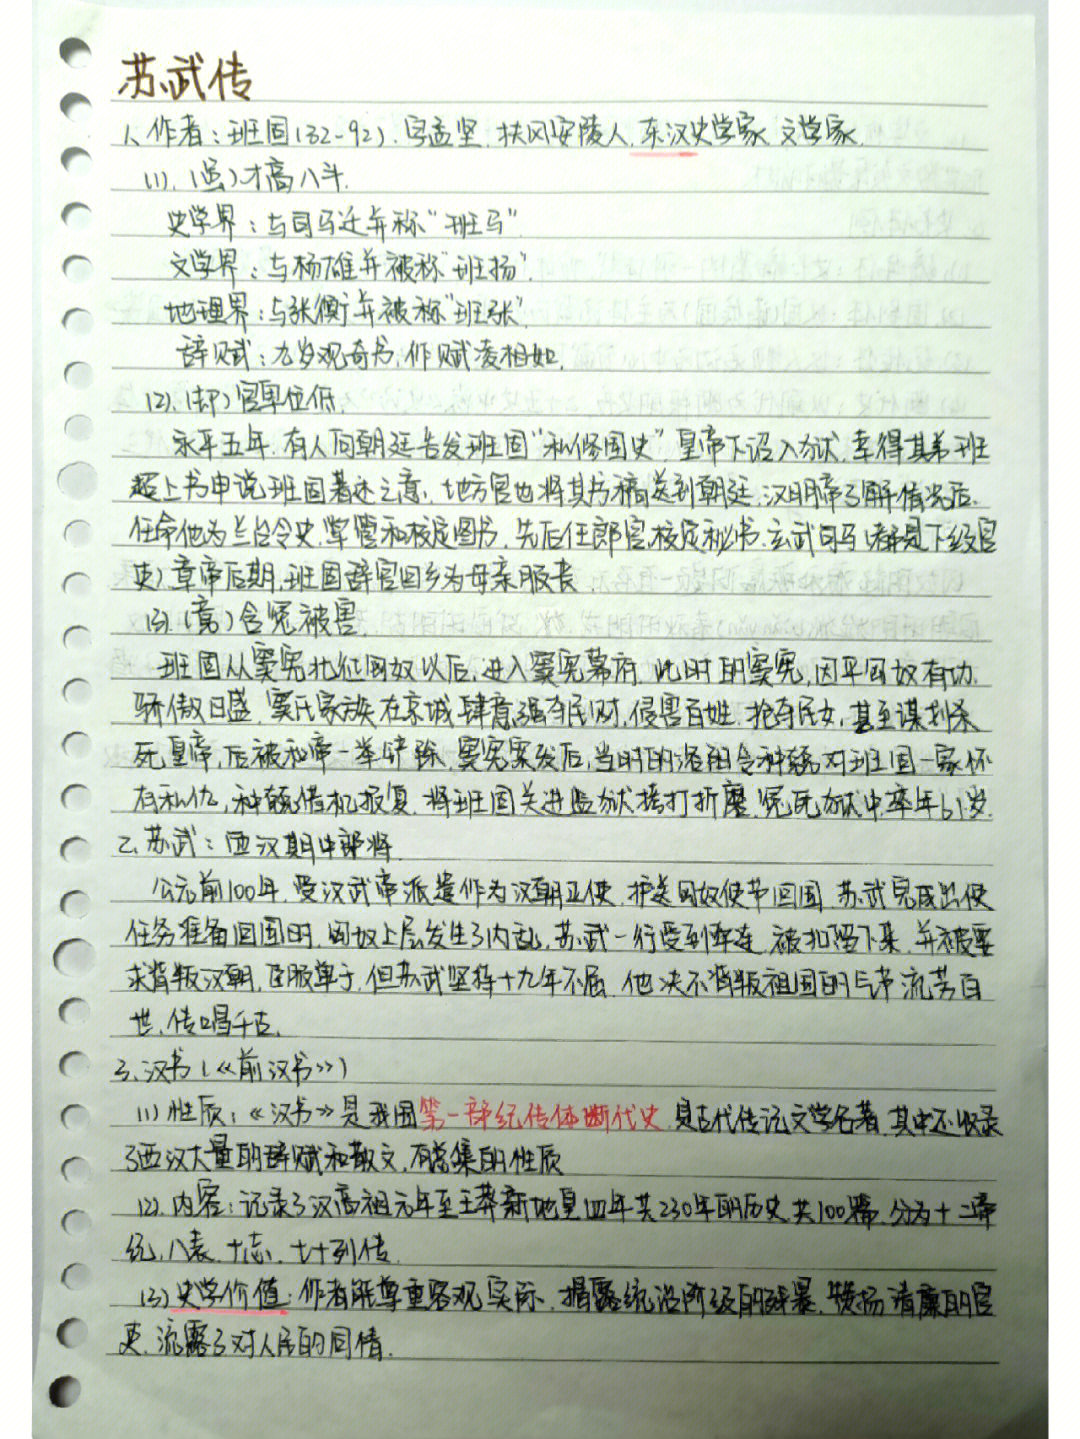 苏武传
1、作者:班固(32-92).字孟坚.扶风安陵人.东汉史学家.文学家.
(1).(虽)才高八斗.
史学界:与司马迁并称"班马"
文学界:与杨雄并被称"班扬".
地理界:与张衡并被称"班张".
辞赋:九岁观奇书,作赋凌相如.
(2).(却)官卑位低.
永平五年.有人向朝廷告发班固"私修国史".皇帝下诏入狱.幸得其弟班
超上书申说班固著述之意.地方官也将其书稿送到朝廷.汉明帝了解情况后.
任命他为兰台令史.掌管和校定图书.先后任郎官.校定秘书.玄武司马(都是下级官
吏).章帝后期.班固辞官回乡为母亲服丧.
(3).(竟)含冤被害.
班固从窦宪北征匈奴以后,进入窦宪幕府.此时的窦宪,因平匈奴有功.
骄傲日盛.窦氏家族在京城肆意强夺民财,侵害百姓.抢夺民女,甚至谋划杀
死皇帝,后被和帝一举铲除,窦宪案发后,当时的洛阳令种兢对班固一家怀
有私仇,种兢借机报复.将班固关进监狱捶打折磨.冤死狱中.卒年61岁.
2、苏武:西汉期中郎将.
公元前100年.受汉武帝派遣作为汉朝正使.护送匈奴使节回国.苏武完成出使
任务准备回国时.匈奴上层发生了内乱,苏武一行受到牵连.被扣留下来.并被要
求背叛汉朝,臣服单于,但苏武坚持十九年不屈.他决不背叛祖国的气节流芳百
世.传唱千古.
3、汉书(《前汉书》)
(1)性质:《汉书》是我国第一部纪传体断代史.是古代传记文学名著.其中还收录
了西汉大量的辞赋和散文,有总集的性质
(2).内容:记录了汉高祖元年至王莽新地皇四年共230年的历史.共100篇.分为十二帝
纪.八表.十志.七十列传.
(3)史学价值:作者能尊重客观实际.揭露统治阶级的残暴.赞扬清廉的官
吏.流露了对人民的同情.